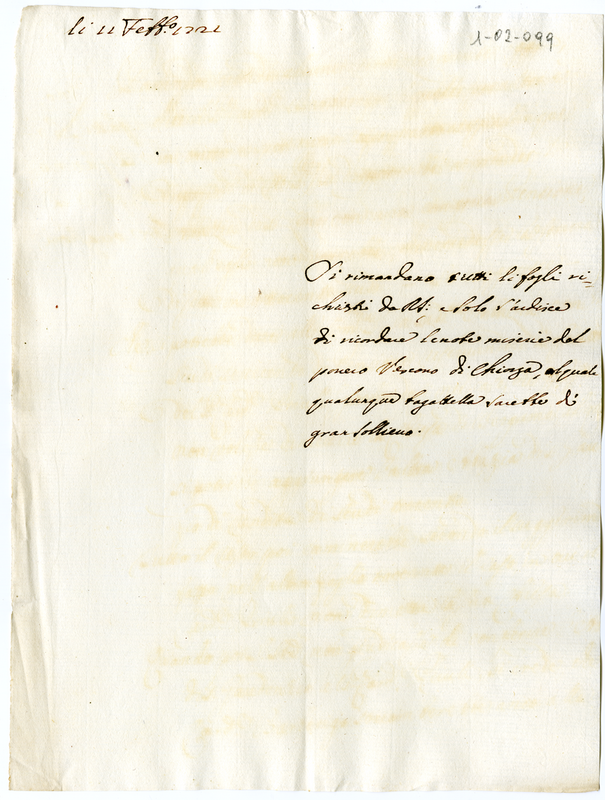 li 11 Febb.o 1721
1-02-099
Si rimandano tutti li fogli ri=
chiesti da e solo s'ardisce
di ricordare le note miserie del
povero Vescovo di al quale
qualunque bagattella sarebbe di
gran sollievo.